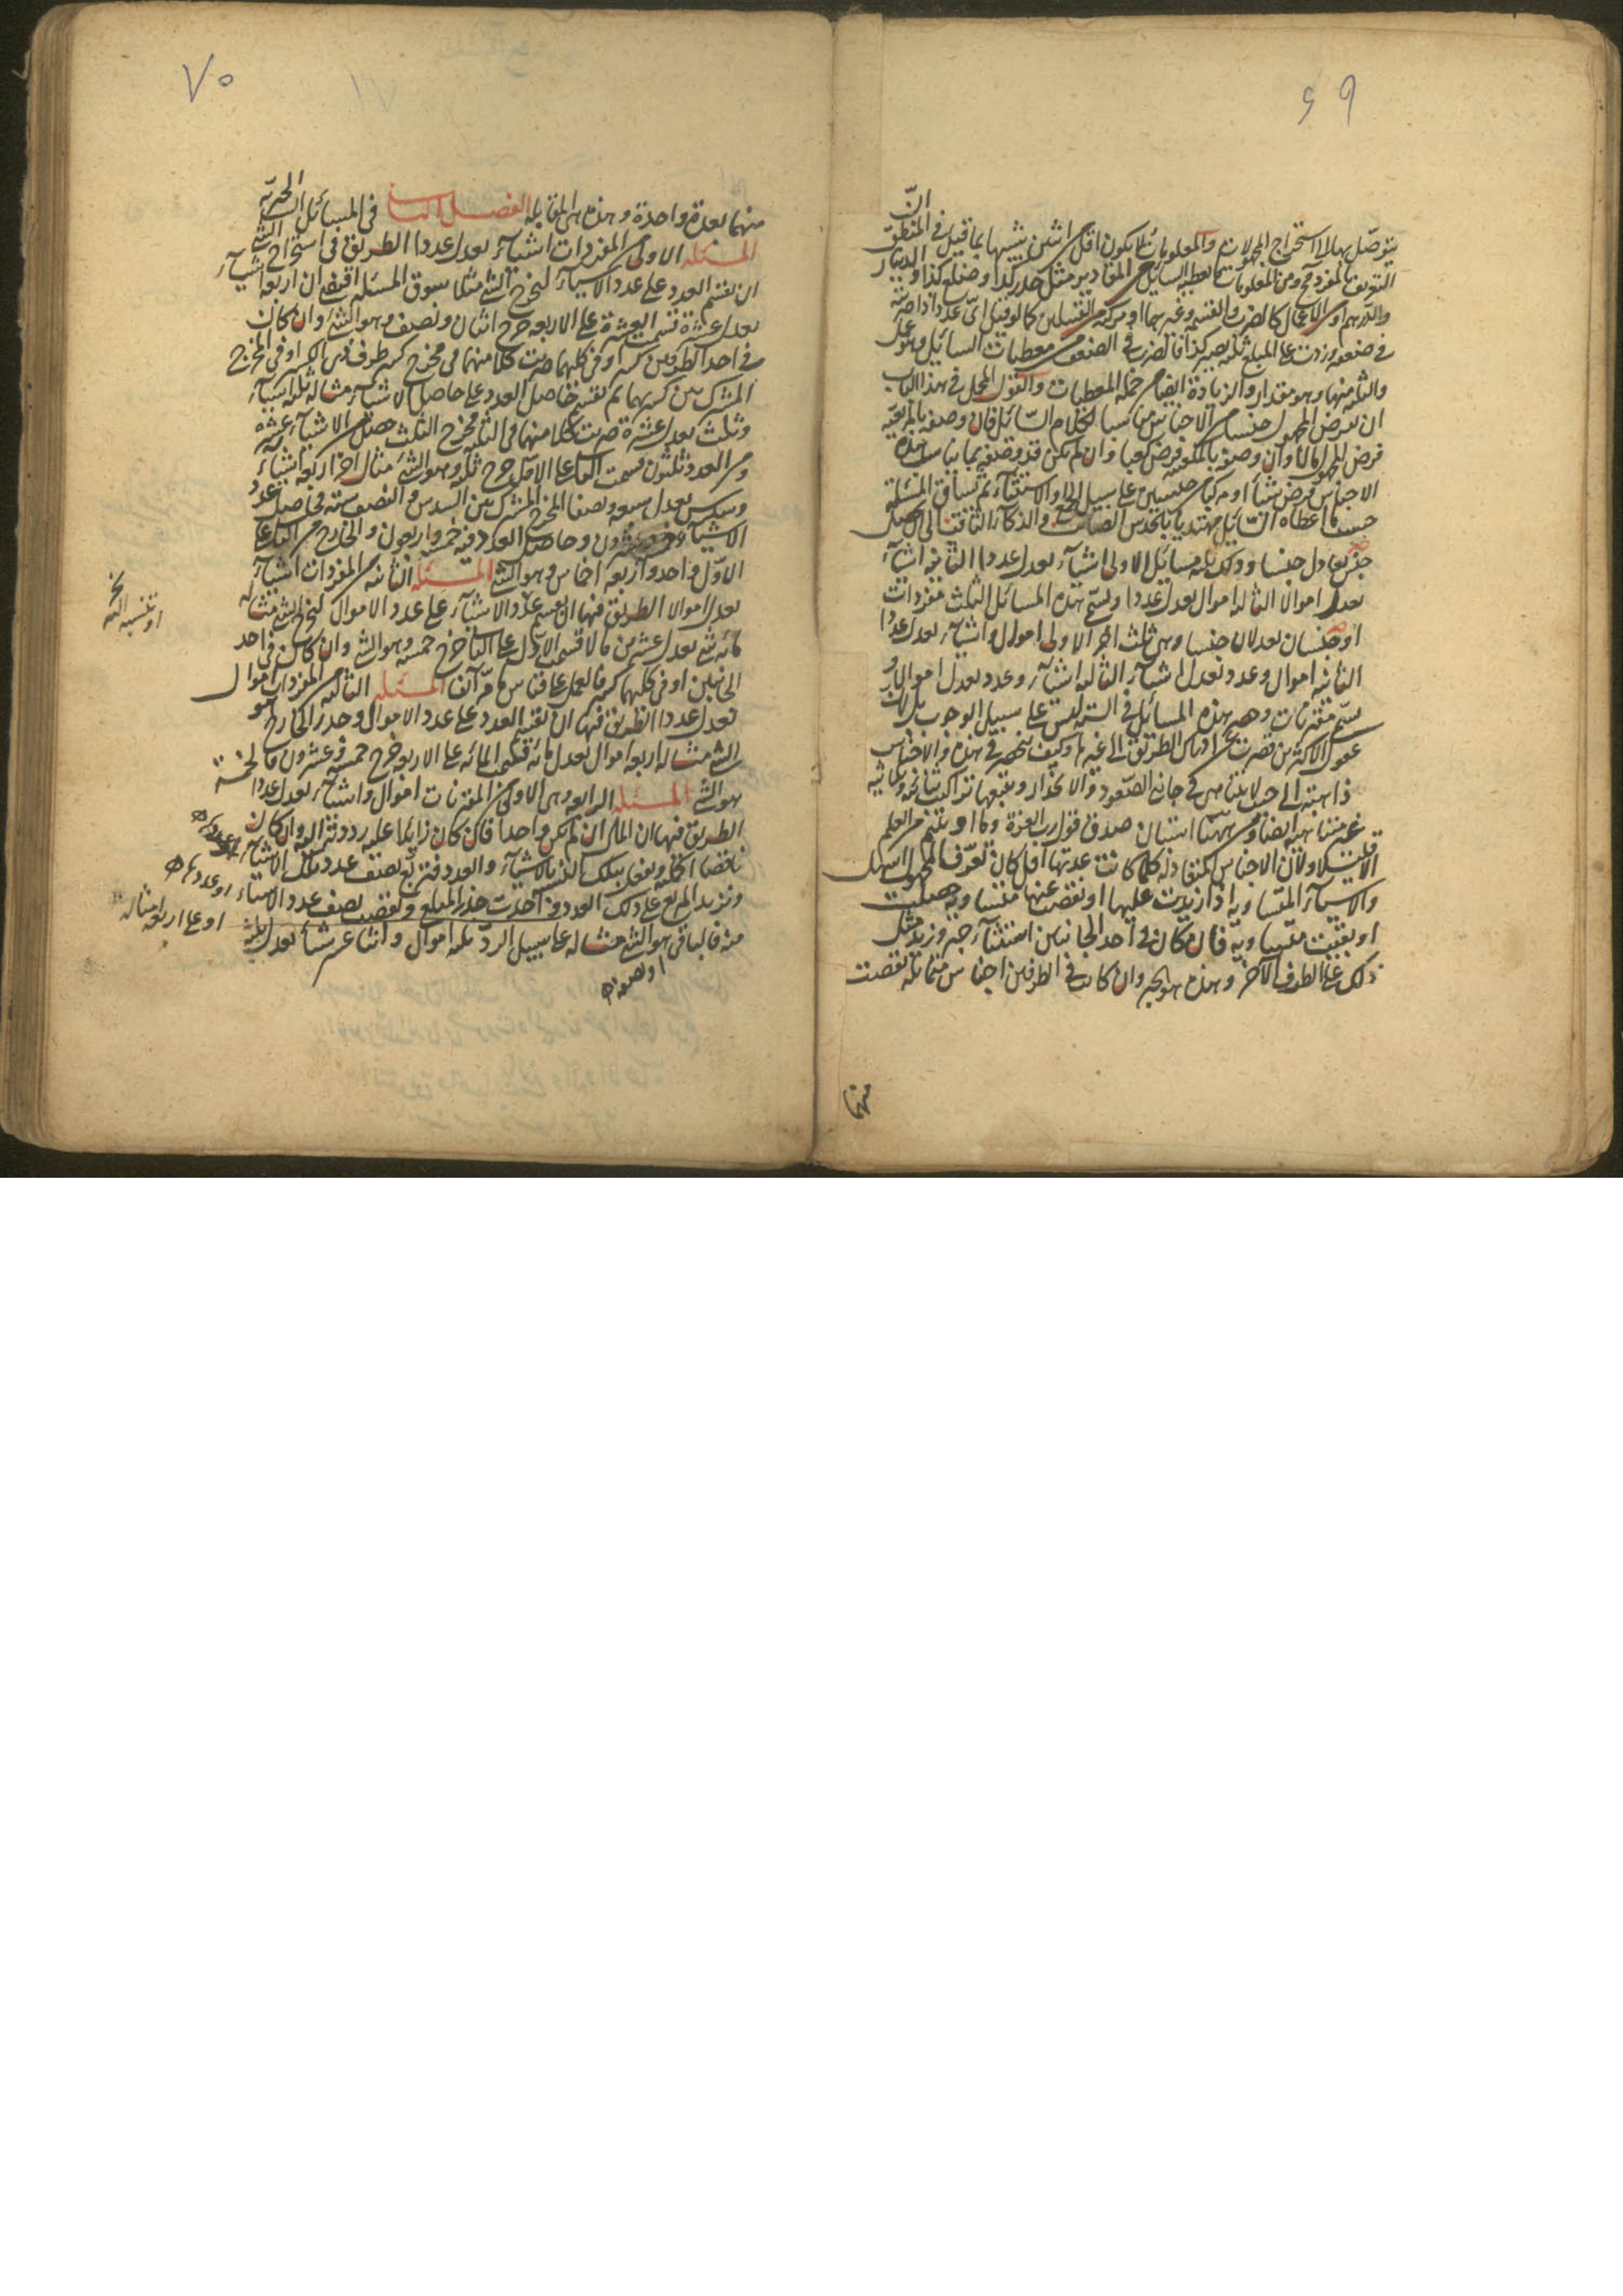 ٦٩
يتوصل بها الى استخراج المجهولات والمعلومات لا يكون اقل من اثنين تشبيها بما قيل في المنطق انّ
التعريف بالمفرد ومن المعلومات ما يعطيه السائل من المقادير مثل جذر كذا وضلع كذا والدينار
والدرهم او من الاعمال كالضرب والقسمة وغيرهما او مركبة من القسمين كما لو قيل اىّ عدد اذا ضربته
في ضعفه وزدت على المبلغ ثلثه يصير كذا فالضرب في الضعف من معطيات السائل وهو عمل
والثلثة منها وهو مقدار والزيادة ايضا من جملة المعطيات والقول المجمل في هذا الباب
ان تفرض المجهول جنسا من الاجناس مناسبا لكلام السائل فان وصفه بالمربعية
فرض المجهول مالا وان وصفه بالمكعبية فرض كعبا وان لم يكن قد وصفه بما يناسب هذه
الاجناس فرض شيئا او مركبا من جنسين على سبيل الجمع او الاستثناء ثم تساق المسئلة
حسب ما اعطاه السائل مهتديا بالحدس الصائب والذكاء الثاقب الى ان يحصل
جنس يعادل جنسا وذلك ثلثة مسائل الاولى اشياء تعدل عددا الثانية اشياء
تعدل اموالا الثالثة اموال تعدل عددا وتسمى هذه المسائل الثلث مفردات
او جنسان تعدلان جنسا وهي ثلث اخر الاولى اموال واشياء تعدل عددا
الثانية اموال وعدد تعدل اشياء الثالثة اشياء وعدد تعدل اموالا و
تسمى مقترنات وحصر هذه المسائل في الستة ليس على سبيل الوجوب بل لان
عقول الاكثرين قصرت عن ادراك الطريق الى غيرها وكيف ينحصر في هذه والاجناس
ذاهبة الى حيث لا يتناهى في جانبي الصعود والانحدار ويتبعها تراكيب ثنائية وثلاثية
غير متناهية ايضا ومن ههنا استبان صدق قول رب العزة وما اوتيتم من العلم
الا قليلا ولان الاجناس المتعادلة كلما كانت عدتها اقل كان تعرف المجهول اسهل
والاشياء المتساوية اذا زيدت عليها او نقصت عنها متساوية حصلت
او بقيت متساوية فان كان في احد الجانبين استثناء جبر وزيد مثل
ذلك على الطرف الآخر وهذه هو الجبر وان كان في الطرفين اجناس متماثلة نقصت
منها
٧٠
منها بعدة واحدة وهذه هي المقابلة الفصل الثاني في المسائل الست الجبرية
المسئلة الاولى من المفردات اشياء تعدل عددا الطريق في استخراج الشئ
ان تقسم العدد على عدد الاشياء ليخرج الشئ مثلا سوق المسئلة اقتضى ان اربعة اشياء
تعدل عشرة قسمت العشرة على الاربعة خرج اثنان ونصف وهو الشئ وان كان
في احد الطرفين كسر او في كليهما ضربت كلا منهما في مخرج كسر طرف ذى الكسر او في المخرج
المشترك بين كسريهما ثم تقسم حاصل العدد على حاصل الاشياء مثاله ثلثة اشياء
وثلث تعدل عشرة ضربت كلا منهما في الثلثة مخرج الثلث حصل من الاشياء عشرة
ومن العدد ثلثون قسمت الثاني على الاول خرج ثلثة وهو الشئ مثال اخر اربعة اشياء
وسدس تعدل سبعة ونصفا المخرج المشترك بين السدس والنصف ستة فحاصل عدد
الاشياء خمسة وعشرون وحاصل العدد فيه خمسة واربعون والخارج من الثاني على
الاول واحد واربعة اخماس وهو الشئ المسئلة الثانية من المفردات اشياء
تعدل اموالا الطريق فيها ان تقسم عدد الاشياء على عدد الاموال ليخرج الشئ مثاله
مائة شئ تعدل عشرين مالا قسمت الاول على الثاني خرج خمسة وهو الشئ وان كان في احد
الجانبين او في كليهما كسر فالعمل على قياس ما مر آنفا المسئلة الثالثة من المفردات اموال
تعدل عددا الطريق فيها ان تقسم العدد على عدد الاموال وجذر الخارج هو
الشئ مثاله اربعة اموال تعدل مائة قسمت المائة على الاربعة خرج خمسة وعشرون فالخمسة
هو الشئ المسئلة الرابعة وهي الاولى من المقترنات اموال واشياء تعدل عددا
الطريق فيها ان المال ان لم يكن واحدا فان كان زائدا عليه رددته اليه وان كان
ناقصا اكملته وتفعل بتلك النسبة بالاشياء والعدد فتربع نصف عدد تلك الاشياء
وتزيد المربع على ذلك العدد وتاخذ جذر المبلغ وتنقص نصف عدد الاشياء
منه فالباقي هو الشئ مثاله على سبيل الرد ثلثة اموال واثنا عشر شيئا تعدل ثلثة
او تنسبه اليه
او عددها
او على اربعة امثاله